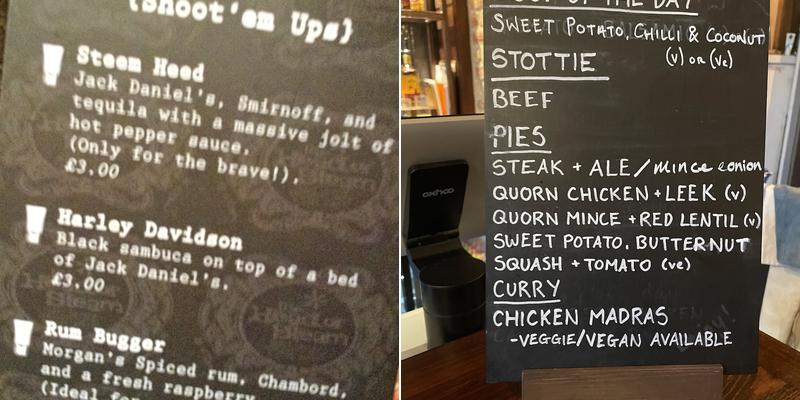 {Shoot'em Ups}
Steem Heed
Jack Daniel's, Smirnoff, and
tequila with a massive jolt of
hot pepper sauce.
(Only for the brave!).
£3.00
Harley Davidson
Black sambuca on top of a bed
of Jack Daniel's.
£3.00
Rum Bugger
Morgan's Spiced rum, Chambord,
and a fresh raspberry
(Ideal for
OF THE DAY
SWEET POTATO, CHILLI & COCONUT
(V) OR (Ve)
STOTTIE
BEEF
PIES
STEAK + ALE / mince & onion
QUORN CHICKEN + LEEK (V)
QUORN MINCE + RED LENTIL (V)
SWEET POTATO, BUTTERNUT
SQUASH + TOMATO (ve)
CURRY
CHICKEN MADRAS
-VEGGIE/VEGAN AVAILABLE